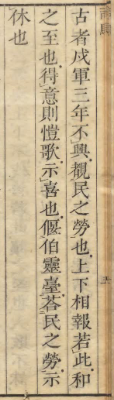 古者戍軍三年不興覩民之勞也上下相報若此和
之至也得意則愷歌示喜也偃伯靈臺荅民之勞示
休也